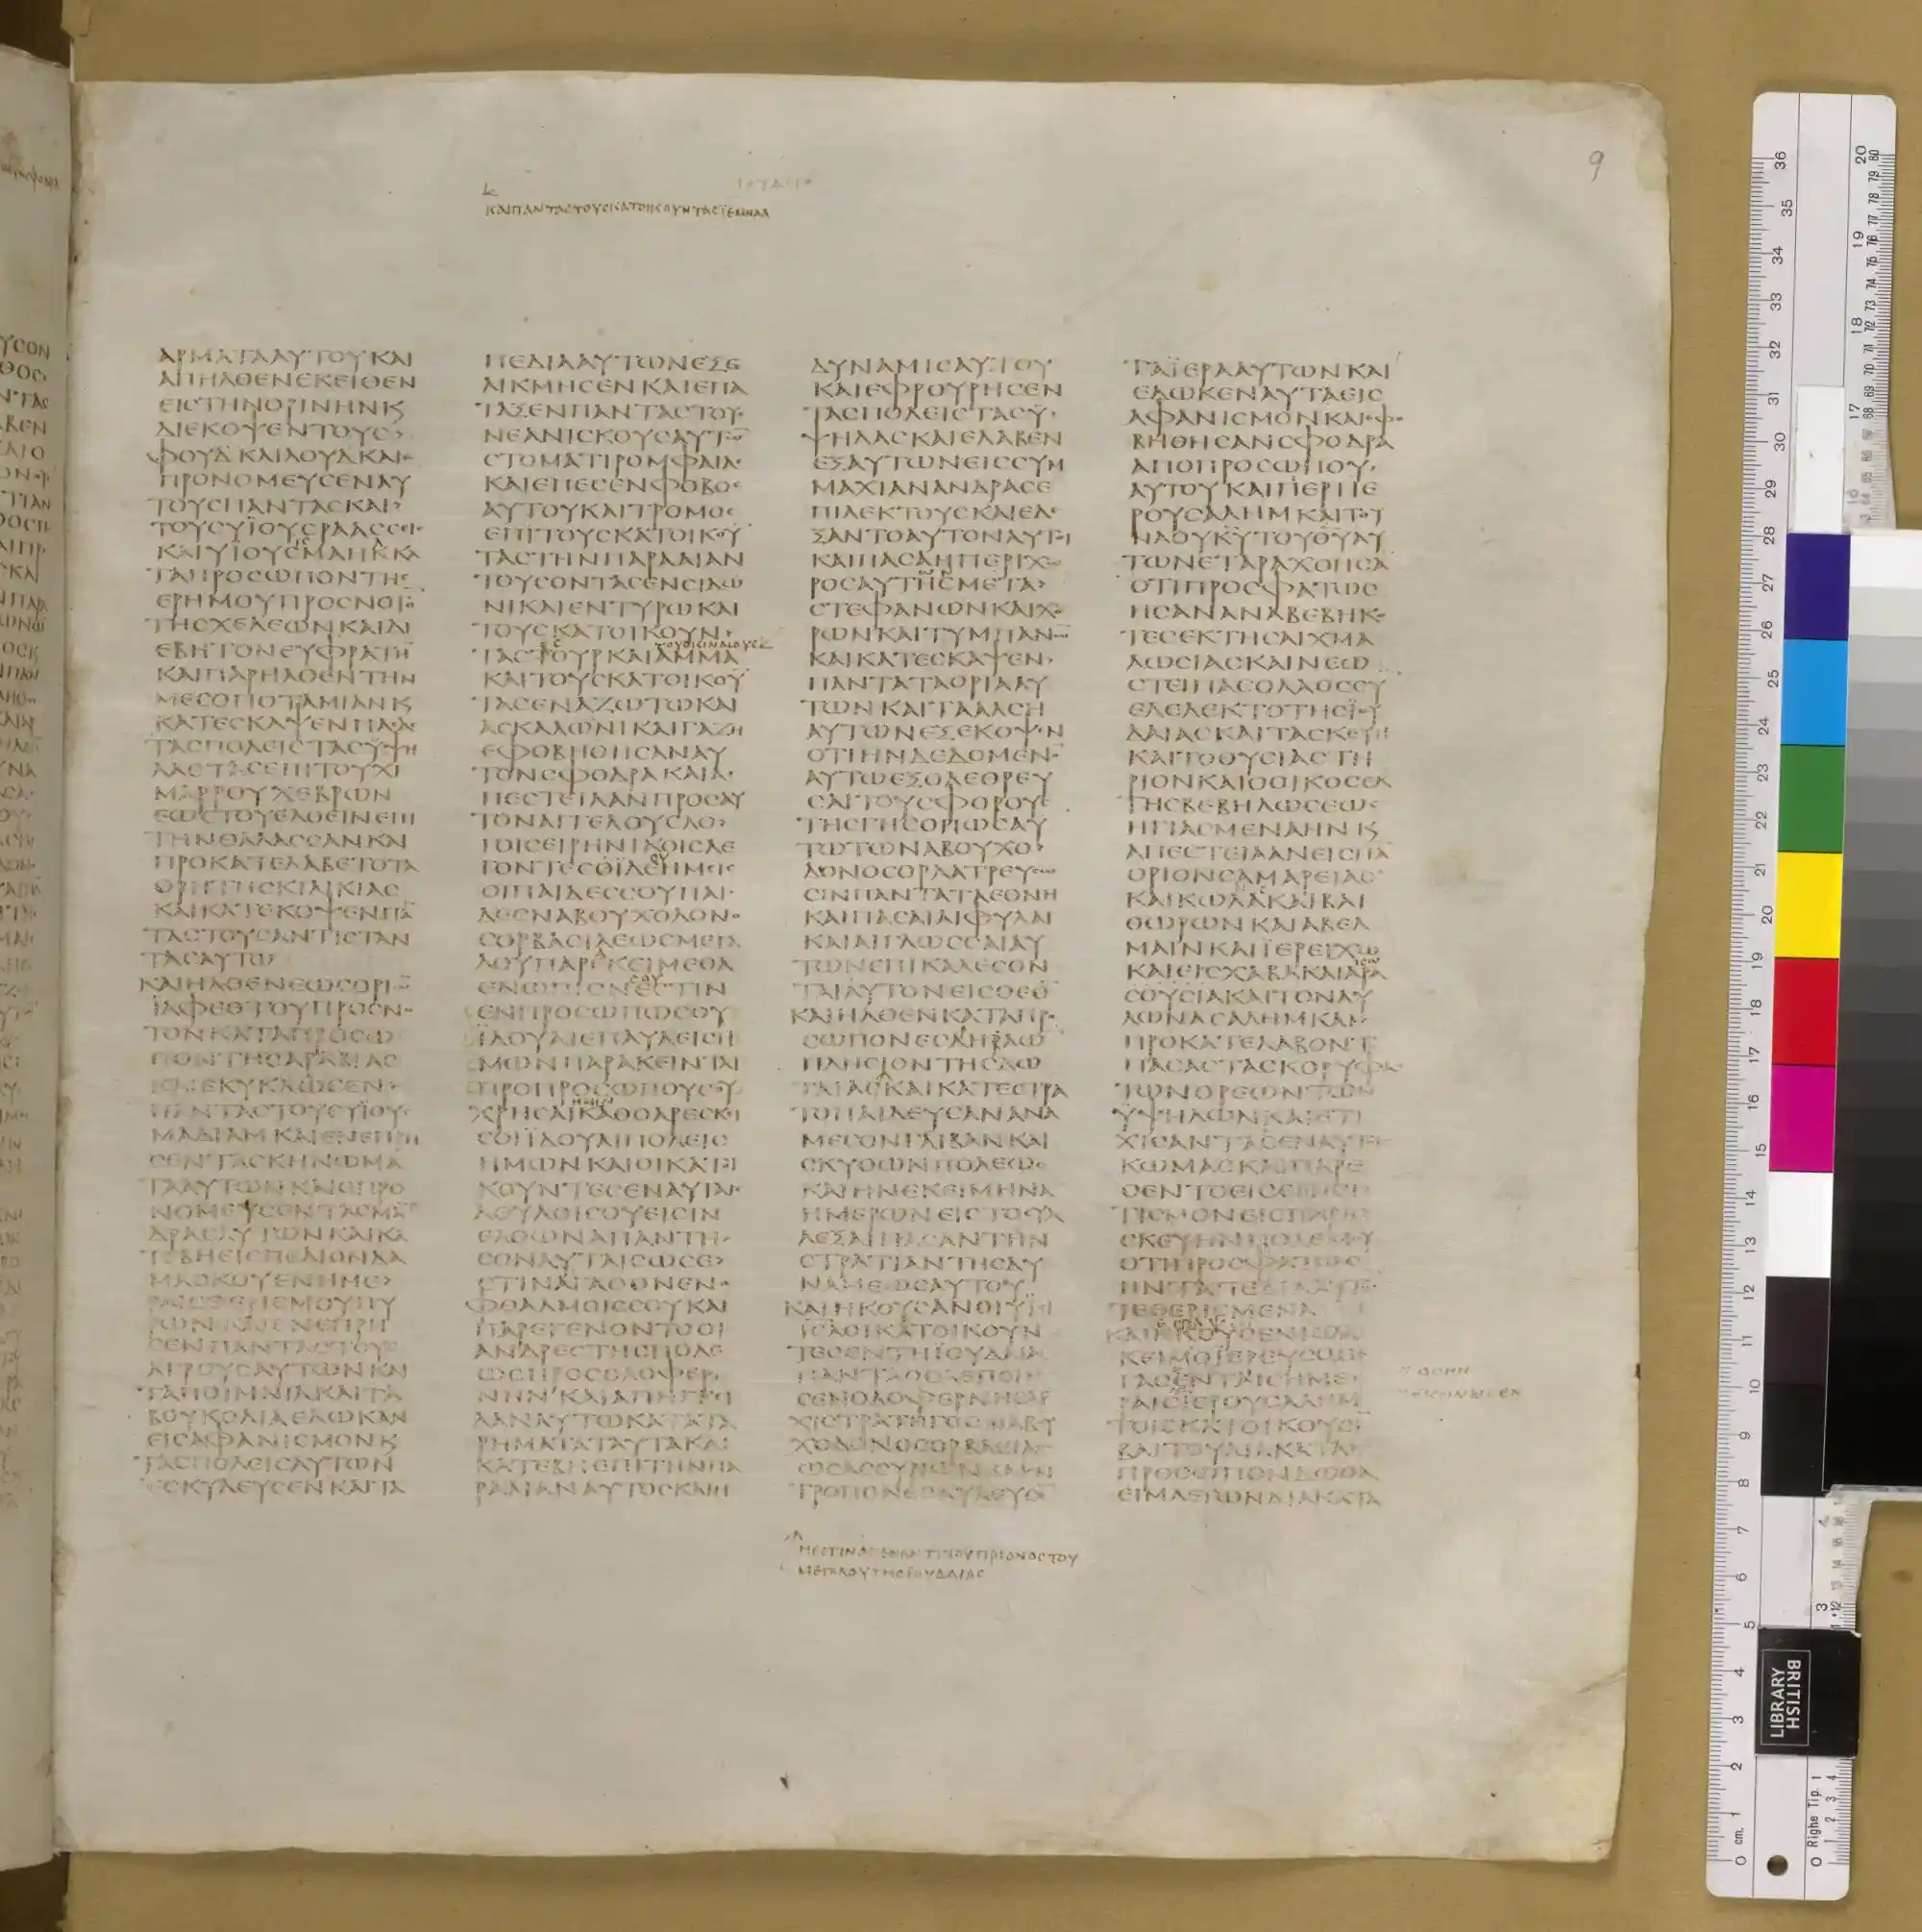 ΙΟΥΔΙΘ
ΚΑΙΠΑΝΤΑΣΤΟΥΣΚΑΤΟΙΚΟΥΝΤΑΣΪΕΜΝΑΑ
9
ΑΡΜΑΤΑΑΥΤΟΥΚΑΙ
ΑΠΗΛΘΕΝΕΚΕΙΘΕΝ
ΕΙΣΤΗΝΟΡΙΝΗΝΚ
ΔΙΕΚΟΨΕΝΤΟΥΣ
ΦΟΥΔΚΑΙΛΟΥΔΚΑΙ
ΠΡΟΝΟΜΕΥΣΕΝΑΥ
ΤΟΥΣΠΑΝΤΑΣΚΑΙ
ΤΟΥΣΥΪΟΥΣΡΑΑΣΣΕΙ
ΤΑΠΡΟΣΩΠΟΝΤΗΣ
ΕΡΗΜΟΥΠΡΟΣΝΟΤΟ
ΤΗΣΧΕΛΕΩΝΚΑΙΔΙ
ΕΒΗΤΟΝΕΥΦΡΑΤΗ
ΚΑΙΠΑΡΗΛΘΕΝΤΗΝ
ΜΕΣΟΠΟΤΑΜΙΑΝΚ
ΚΑΤΕΣΚΑΨΕΝΠΑΣΑ
ΤΑΣΠΟΛΕΙΣΤΑΣΫΨΗ
ΛΑΣΤΑΣΕΠΙΤΟΥΧΙ
ΜΑΡΡΟΥΧΕΒΡΩΝ
ΕΩΣΤΟΥΕΛΘΕΙΝΕΠΙ
ΤΗΝΘΑΛΑΣΣΑΝΚΑΙ
ΠΡΟΚΑΤΕΛΑΒΕΤΟΤΑ
ΟΡΗΤΗΣΚΙΛΙΚΙΑΣ
ΚΑΙΚΑΤΕΚΟΨΕΝΠΑ
ΤΑΣΤΟΥΣΑΝΤΙΣΤΑΝ
ΤΑΣΑΥΤΩ
ΚΑΙΗΛΘΕΝΕΩΣΟΡΙΩ
ΪΑΦΕΘΤΟΥΠΡΟΣΝΟ
ΤΟΝΚΑΤΑΠΡΟΣΩ
ΠΟΝΤΗΣΑΡΑΒΙΑΣ
ΚΑΙΕΚΥΚΛΩΣΕΝ
ΠΑΝΤΑΣΤΟΥΣΥΪΟΥΣ
ΜΑΔΙΑΜΚΑΙΕΝΕΠΡΗ
ΣΕΝΤΑΣΚΗΝΩΜΑ
ΤΑΑΥΤΩΝΚΑΙΕΠΡΟ
ΝΟΜΕΥΣΕΝΤΑΣΜΑ
ΔΡΑΣΑΥΤΩΝΚΑΙΚΑ
ΤΕΒΗΕΙΣΠΕΔΙΟΝΔΑ
ΜΑΣΚΟΥΕΝΗΜΕ
ΡΑΙΣΘΕΡΙΣΜΟΥΠΥ
ΡΩΝΚΑΙΕΝΕΠΡΗ
ΣΕΝΠΑΝΤΑΣΤΟΥΣ
ΑΓΡΟΥΣΑΥΤΩΝΚΑΙ
ΤΑΠΟΙΜΝΙΑΚΑΙΤΑ
ΒΟΥΚΟΛΙΑΕΔΩΚΑΝ
ΕΙΣΑΦΑΝΙΣΜΟΝΚ
ΤΑΣΠΟΛΕΙΣΑΥΤΩΝ
ΕΣΚΥΛΕΥΣΕΝΚΑΙΤΑ
ΠΕΔΙΑΑΥΤΩΝΕΞΕ
ΛΙΚΜΗΣΕΝΚΑΙΕΠΑ
ΤΑΞΕΝΠΑΝΤΑΣΤΟΥΣ
ΝΕΑΝΙΣΚΟΥΣΑΥΤΩ
ΣΤΟΜΑΤΙΡΟΜΦΑΙΑΣ
ΚΑΙΕΠΕΣΕΝΦΟΒΟΣ
ΑΥΤΟΥΚΑΙΤΡΟΜΟΣ
ΕΠΙΤΟΥΣΚΑΤΟΙΚΟΥ
ΤΑΣΤΗΝΠΑΡΑΛΙΑΝ
ΤΟΥΣΟΝΤΑΣΕΝΣΙΔΩ
ΝΙΚΑΙΕΝΤΥΡΩΚΑΙ
ΤΟΥΣΚΑΤΟΙΚΟΥΝ
ΚΑΙΤΟΥΣΚΑΤΟΙΚΟΥ
ΤΑΣΕΝΑΖΩΤΩΚΑΙ
ΑΣΚΑΛΩΝΙΚΑΙΓΑΖΗ
ΕΦΟΒΗΘΗΣΑΝΑΥ
ΤΟΝΣΦΟΔΡΑΚΑΙΑ
ΠΕΣΤΕΙΛΑΝΠΡΟΣΑΥ
ΤΟΝΑΓΓΕΛΟΥΣΛΟ
ΓΟΙΣΕΙΡΗΝΙΚΟΙΣΛΕ
ΓΟΝΤΕΣΟΪΔΕΗΜΕΙΣ
ΟΙΠΑΙΔΕΣΣΟΥΠΑΙ
ΔΕΣΝΑΒΟΥΧΟΔΟΝΟ
ΣΟΡΒΑΣΙΛΕΩΣΜΕΓΑ
ΛΟΥΠΑΡΑΚΕΙΜΕΘΑ
ΕΝΩΠΙΟΝΕΣΤΙΝ
ΕΝΠΡΟΣΩΠΩΣΟΥ
ΪΔΟΥΑΙΕΠΑΥΛΕΙΣΗ
ΜΩΝΠΑΡΑΚΕΙΝΤΑΙ
ΠΡΟΠΡΟΣΩΠΟΥΣΟΥ
ΧΡΗΣΑΙΚΑΘΟΑΡΕΣΚΙ
ΣΟΙΪΔΟΥΑΙΠΟΛΕΙΣ
ΗΜΩΝΚΑΙΟΙΚΑΤΟΙ
ΚΟΥΝΤΕΣΕΝΑΥΤΑΙΣ
ΔΟΥΛΟΙΣΟΥΕΙΣΙΝ
ΕΛΘΩΝΑΠΑΝΤΗ
ΣΟΝΑΥΤΑΙΣΩΣΕ
ΣΤΙΝΑΓΑΘΟΝΕΝΟ
ΦΘΑΛΜΟΙΣΣΟΥΚΑΙ
ΠΑΡΕΓΕΝΟΝΤΟΟΙ
ΑΝΔΡΕΣΤΗΣΠΟΛΕ
ΩΣΠΡΟΣΟΛΟΦΕΡ
ΝΗΝΚΑΙΑΠΗΓΓΕΙ
ΛΑΝΑΥΤΩΚΑΤΑΤΑ
ΡΗΜΑΤΑΤΑΥΤΑΚΑΙ
ΚΑΤΕΒΗΕΠΙΤΗΝΠΑ
ΡΑΛΙΑΝΑΥΤΟΣΚΑΙΗ
ΔΥΝΑΜΙΣΑΥΤΟΥ
ΚΑΙΕΦΡΟΥΡΗΣΕΝ
ΤΑΣΠΟΛΕΙΣΤΑΣΫ
ΨΗΛΑΣΚΑΙΕΛΑΒΕΝ
ΕΞΑΥΤΩΝΕΙΣΣΥΜ
ΜΑΧΙΑΝΑΝΔΡΑΣΕ
ΠΙΛΕΚΤΟΥΣΚΑΙΕΔΕ
ΞΑΝΤΟΑΥΤΟΝΑΥΤΟΙ
ΚΑΙΠΑΣΑΗΠΕΡΙΧΩ
ΡΟΣΑΥΤΗΣΜΕΤΑ
ΣΤΕΦΑΝΩΝΚΑΙΧΟ
ΡΩΝΚΑΙΤΥΜΠΑΝΩ
ΚΑΙΚΑΤΕΣΚΑΨΕΝ
ΠΑΝΤΑΤΑΟΡΙΑΑΥ
ΤΩΝΚΑΙΤΑΑΛΣΗ
ΑΥΤΩΝΕΞΕΚΟΨΕΝ
ΟΤΙΗΝΔΕΔΟΜΕΝΟ
ΑΥΤΩΕΞΟΛΕΘΡΕΥ
ΣΑΙΤΟΥΣΦΟΡΟΥΣ
ΤΗΣΓΗΣΟΠΩΣΑΥ
ΤΩΤΩΝΑΒΟΥΧΟ
ΔΟΝΟΣΟΡΛΑΤΡΕΥΣΩ
ΣΙΝΠΑΝΤΑΤΑΕΘΝΗ
ΚΑΙΠΑΣΑΙΑΙΦΥΛΑΙ
ΚΑΙΑΙΓΛΩΣΣΑΙΑΥ
ΤΩΝΕΠΙΚΑΛΕΣΟΝ
ΤΑΙΑΥΤΟΝΕΙΣΘΕΟ
ΚΑΙΗΛΘΕΝΚΑΤΑΠΡΟ
ΣΩΠΟΝΕΣΔΡΗΛΩ
ΠΛΗΣΙΟΝΤΗΣΔΩ
ΤΑΙΑΣΚΑΙΚΑΤΕΣΤΡΑ
ΤΟΠΑΙΔΕΥΣΑΝΑΝΑ
ΜΕΣΟΝΓΑΙΒΑΝΚΑΙ
ΣΚΥΘΩΝΠΟΛΕΩΣ
ΚΑΙΗΝΕΚΕΙΜΗΝΑ
ΗΜΕΡΩΝΕΙΣΤΟΣΥΛ
ΛΕΞΑΙΠΑΣΑΝΤΗΝ
ΣΤΡΑΤΙΑΝΤΗΣΔΥ
ΝΑΜΕΩΣΑΥΤΟΥ
ΚΑΙΗΚΟΥΣΑΝΟΙΥΪΟΙ
ΙΣΛΟΙΚΑΤΟΙΚΟΥΝ
ΤΕΣΕΝΤΗΪΟΥΔΑΙΑ
ΠΑΝΤΑΟΣΑΕΠΟΙΗ
ΣΕΝΟΛΟΦΕΡΝΗΣΑΡ
ΧΙΣΤΡΑΤΗΓΟΣΝΑΒΥ
ΧΟΔΟΝΟΣΟΡΒΑΣΙΛΕ
ΩΣΑΣΣΥΡΙΩΝΚΑΙΟΝ
ΤΡΟΠΟΝΕΣΚΥΛΕΥΣΕ
ΤΑΪΕΡΑΑΥΤΩΝΚΑΙ
ΕΔΩΚΕΝΑΥΤΑΕΙΣ
ΑΦΑΝΙΣΜΟΝΚΑΙΕΦΟ
ΒΗΘΗΣΑΝΣΦΟΔΡΑ
ΑΠΟΠΡΟΣΩΠΟΥ
ΑΥΤΟΥΚΑΙΠΕΡΙΪΕ
ΡΟΥΣΑΛΗΜΚΑΙΤΟΥ
ΝΑΟΥΚΥΤΟΥΘΥΑΥ
ΤΩΝΕΤΑΡΑΧΘΗΣΑ
ΟΤΙΠΡΟΣΦΑΤΩΣ
ΗΣΑΝΑΝΑΒΕΒΗΚΟ
ΤΕΣΕΚΤΗΣΑΙΧΜΑ
ΛΩΣΙΑΣΚΑΙΝΕΩ
ΣΤΕΙΠΑΣΟΛΑΟΣΣΥ
ΕΛΕΛΕΚΤΟΤΗΣΪΟΥ
ΔΑΙΑΣΚΑΙΤΑΣΚΕΥΗ
ΚΑΙΤΟΘΥΣΙΑΣΤΗ
ΡΙΟΝΚΑΙΟΟΙΚΟΣΕΚ
ΤΗΣΒΕΒΗΛΩΣΕΩΣ
ΗΓΙΑΣΜΕΝΑΗΝΚ
ΑΠΕΣΤΕΙΛΑΝΕΙΣΠΑ
ΟΡΙΟΝΣΑΜΑΡΕΙΑΣ
ΘΩΡΩΝΚΑΙΑΒΕΛ
ΜΑΙΝΚΑΙΪΕΡΕΙΧΩ
ΚΑΙΕΙΣΧΑΒΑΚΑΙΑΙΣΩ
ΣΟΥΣΙΑΚΑΙΤΟΝΑΥ
ΛΩΝΑΣΑΛΗΜΚΑΙ
ΠΡΟΚΑΤΕΛΑΒΟΝΤΟ
ΠΑΣΑΣΤΑΣΚΟΡΥΦΑΣ
ΤΩΝΟΡΕΩΝΤΩΝ
ΫΨΗΛΩΝΚΑΙΕΤΙ
ΧΙΣΑΝΤΑΣΕΝΑΥΤΟΙ
ΚΩΜΑΣΚΑΙΠΑΡΕ
ΘΕΝΤΟΕΙΣΕΠΙΣΙ
ΤΙΣΜΟΝΕΙΣΠΑΡΑ
ΣΚΕΥΗΝΠΟΛΕΜΟΥ
ΟΤΙΠΡΟΣΦΑΤΩΣ
ΗΝΤΑΠΕΔΙΑΑΥΤΩ
ΤΕΘΕΡΙΣΜΕΝΑ
ΚΕΙΜΟΪΕΡΕΥΣΟΜΕ
ΓΑΣΕΝΤΑΙΣΗΜΕ
ΤΟΙΣΚΑΤΟΙΚΟΥΣΙ
ΠΡΟΣΩΠΟΝΔΩΘΑ
ΕΙΜΠΕΔΙΩΝΔΙΑΚΑΤΑ
ΗΕΣΤΙΝΑΠΕΝΑΝΤΙΤΟΥΠΡΙΟΝΟΣΤΟΥ
ΜΕΓΑΛΟΥΤΗΣΪΟΥΔΑΙΑΣ
BRITISH
LIBRARY